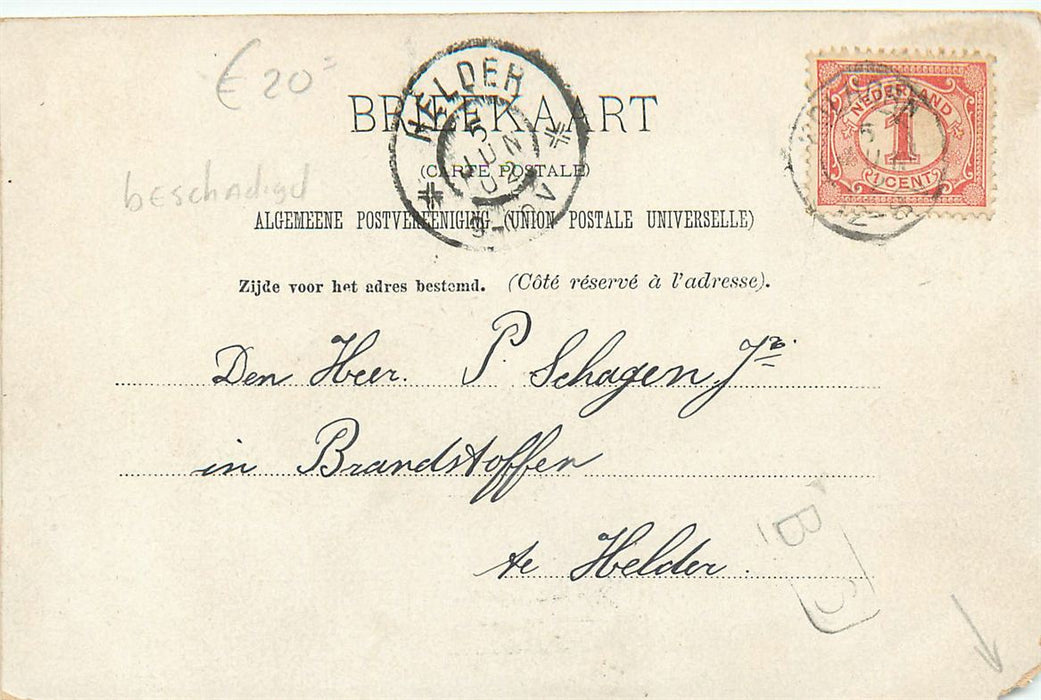 € 20=
BRIEFKAART
(CARTE POSTALE)
ALGEMEENE POSTVEREENIGING (UNION POSTALE UNIVERSELLE)
Zijde voor het adres bestemd. (Côté réservé à l'adresse).
beschadigd
HELDER
5 JUN 02
NEDERLAND
1
1 CENT
Den Heer. P. Schagen Jr.
in Brandstoffen
te Helder.